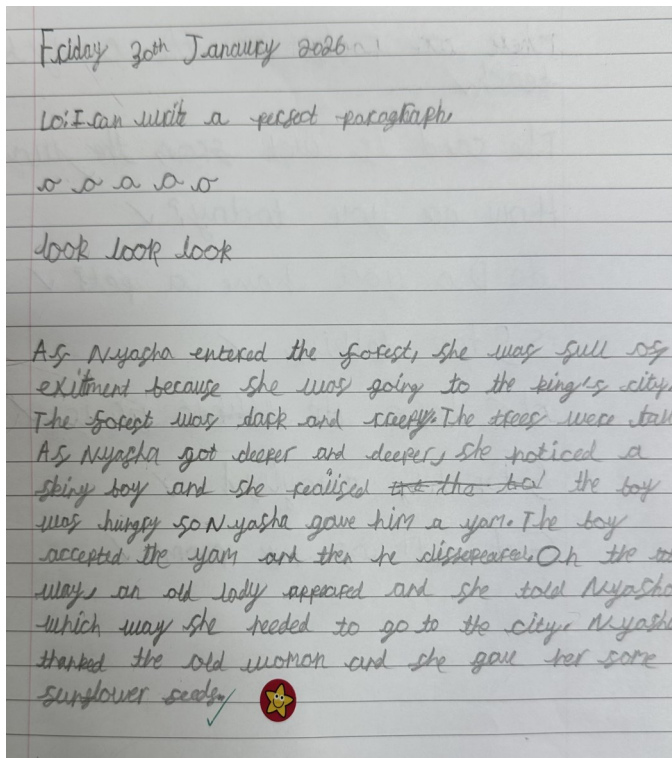 Friday 30th Janaury 2026
Lo: I can write a perfect paragraph.
o o a o o
look look look
As Nyasha entered the forest, she was full of
exitment because she was going to the king's city.
The forest was dark and creepy. The trees were tall
As Nyasha got deeper and deeper, she noticed a
shiny boy and she realised the boy
was hungry so Nyasha gave him a yam. The boy
accepted the yam and then he dissepeared. On the
way, an old lady appeared and she told Nyasha
which way she needed to go to the city. Nyasha
thanked the old woman and she gave her some
sunflower seeds.